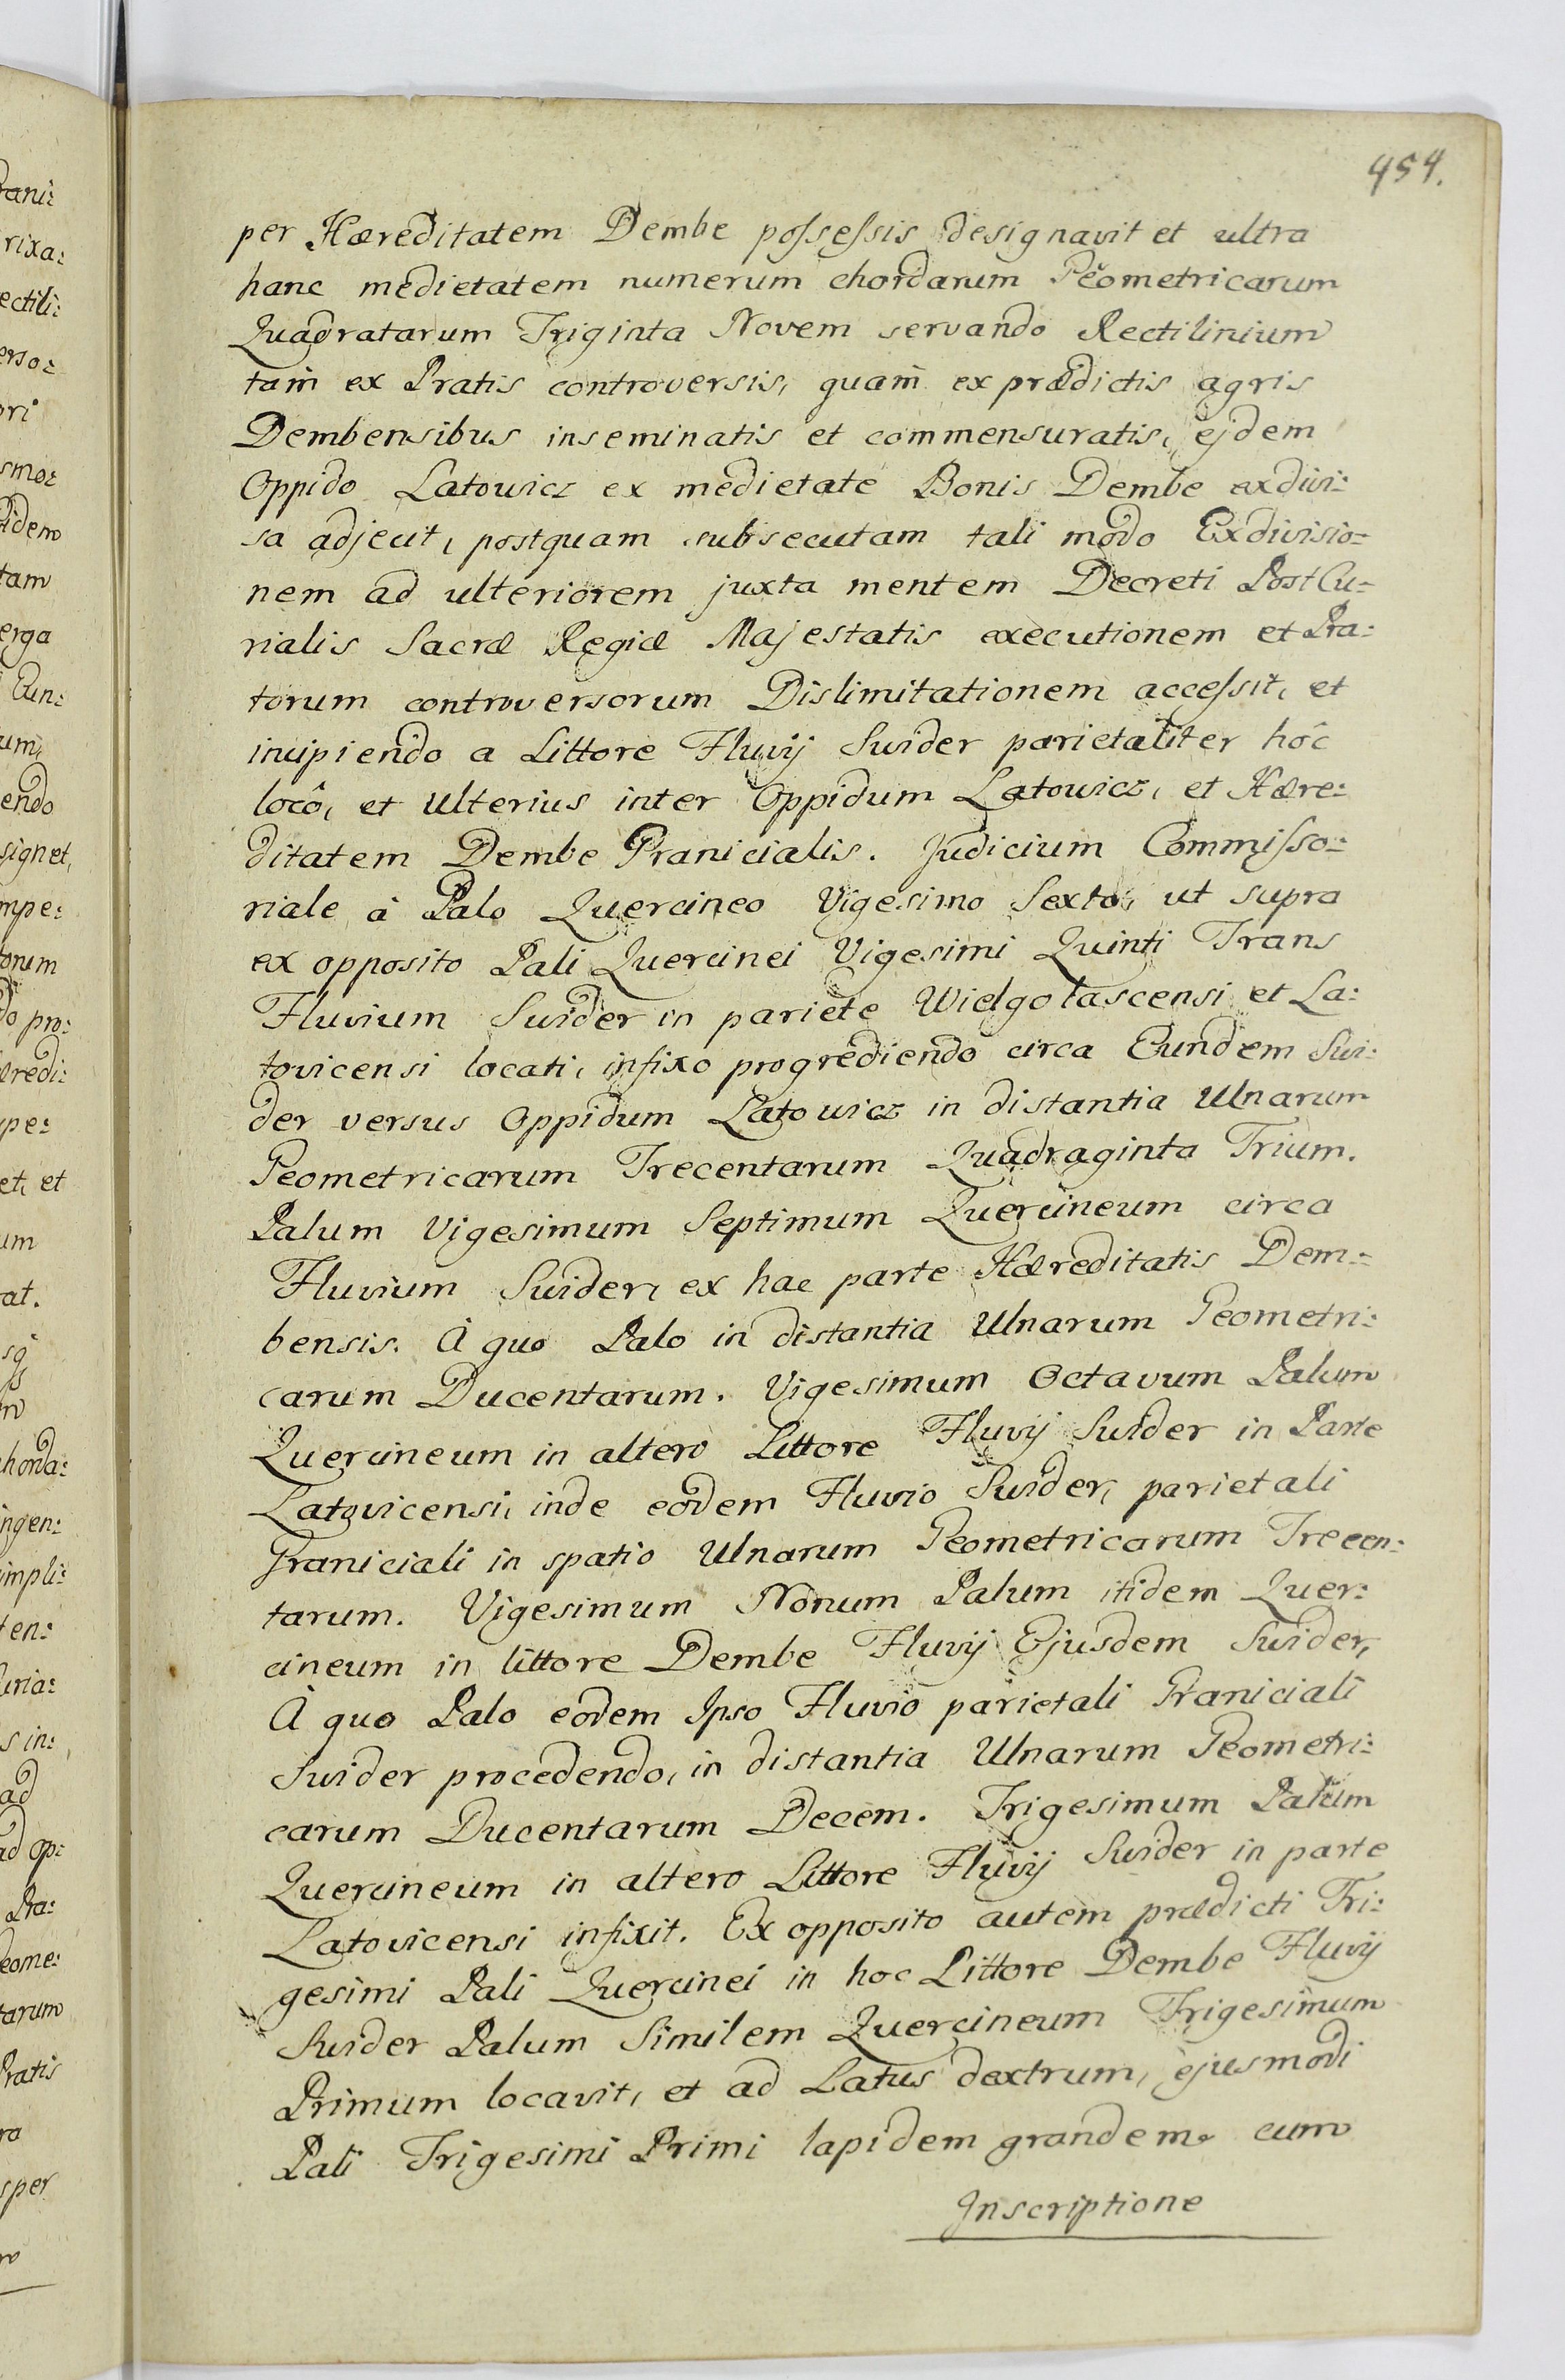 454.
per Hæreditatem Dembe possessis designavit et ultra
hanc medietatem numerum chordarum Geometricarum
Quadratarum Triginta Novem servando Rectilinium
tam ex Pratis controversis, quam ex prædictis agris
Dembensibus inseminatis et commensuratis, ejdem
Oppido Latowicz ex medietate Bonis Dembe exdivi:
sa adjecit, postquam subsecutam tali modo Exdivisio:
nem ad ulteriorem juxta mentem Decreti PostCu:
rialis Sacræ Regiæ Majestatis executionem et Pra:
torum controversorum Dislimitationem accessit, et
incipiendo a Littore Fluvij Swider parietaliter hôc
locô, et Ulterius inter Oppidum Latowicz, et Hære:
ditatem Dembe Granicialis. Judicium Commisso:
riale à Palo Quercineo Vigesimo Sexto, ut supra
ex opposito Pali Quercinei Vigesimi Quinti Trans
Fluvium Swider in pariete Wielgolascensi et La:
tovicensi locati, infixo progrediendo circa Eundem Swi:
der versus Oppidum Latowicz in distantia Ulnarum
Geometricarum Trecentarum Quadraginta Trium.
Palum Vigesimum Septimum Quercineum circa
Fluvium Swider, ex hac parte Hæreditatis Dem:
bensis. À quo Palo in distantia Ulnarum Geometri:
carum Ducentarum. Vigesimum Octavum Palum
Quercineum in altero Littore Fluvij Swider in Parte
Latovicensi, inde eodem Fluvio Swider, parietali
Graniciali in spatio Ulnarum Geometricarum Trecen:
tarum. Vigesimum Nonum Palum itidem Quer:
cineum in littore Dembe Fluvij Ejusdem Swider,
À quo Palo eodem Ipso Fluvio parietali Graniciali
Swider procedendo, in distantia Ulnarum Geometri:
carum Ducentarum Decem. Trigesimum Palum
Quercineum in altero Littore Fluvij Swider in parte
Latovicensi infixit. Ex opposito autem prædicti Tri:
gesimi Pali Quercinei in hoc Littore Dembe Fluvij
Swider Palum Similem Quercineum Trigesimum
Primum locavit, et ad Latus dextrum, ejusmodi
Pali Trigesimi Primi lapidem grandem cum
Inscriptione